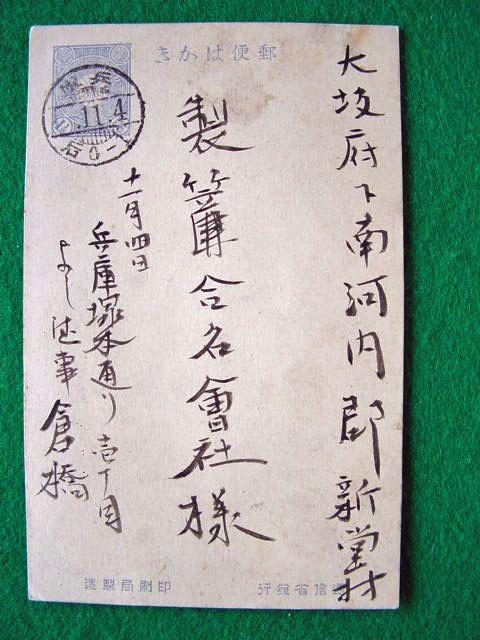 郵便はかき
大坂府下南河内郡新堂村
製簾合名會社様
十一月四日
兵庫塚本通り壱丁目
よし徳事 倉橋
11.4
遞信省發行
印刷局製造